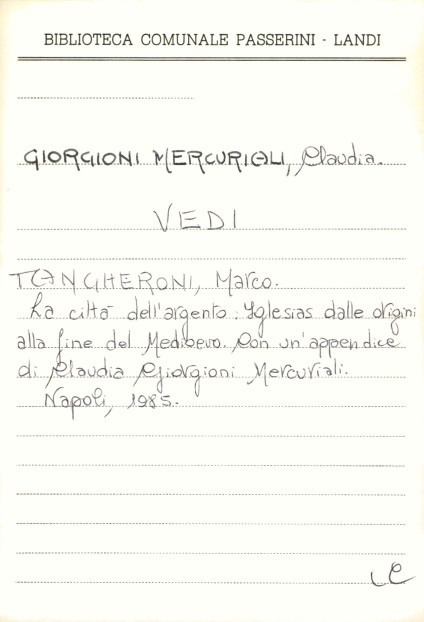 BIBLIOTECA COMUNALE PASSERINI - LANDI
GIORGIONI MERCURIALI, Claudia.
VEDI
TANGHERONI, Marco.
La città dell'argento. Iglesias dalle origini
alla fine del Medioevo. Con un'appendice
di Claudia Giorgioni Mercuriali.
Napoli, 1985.